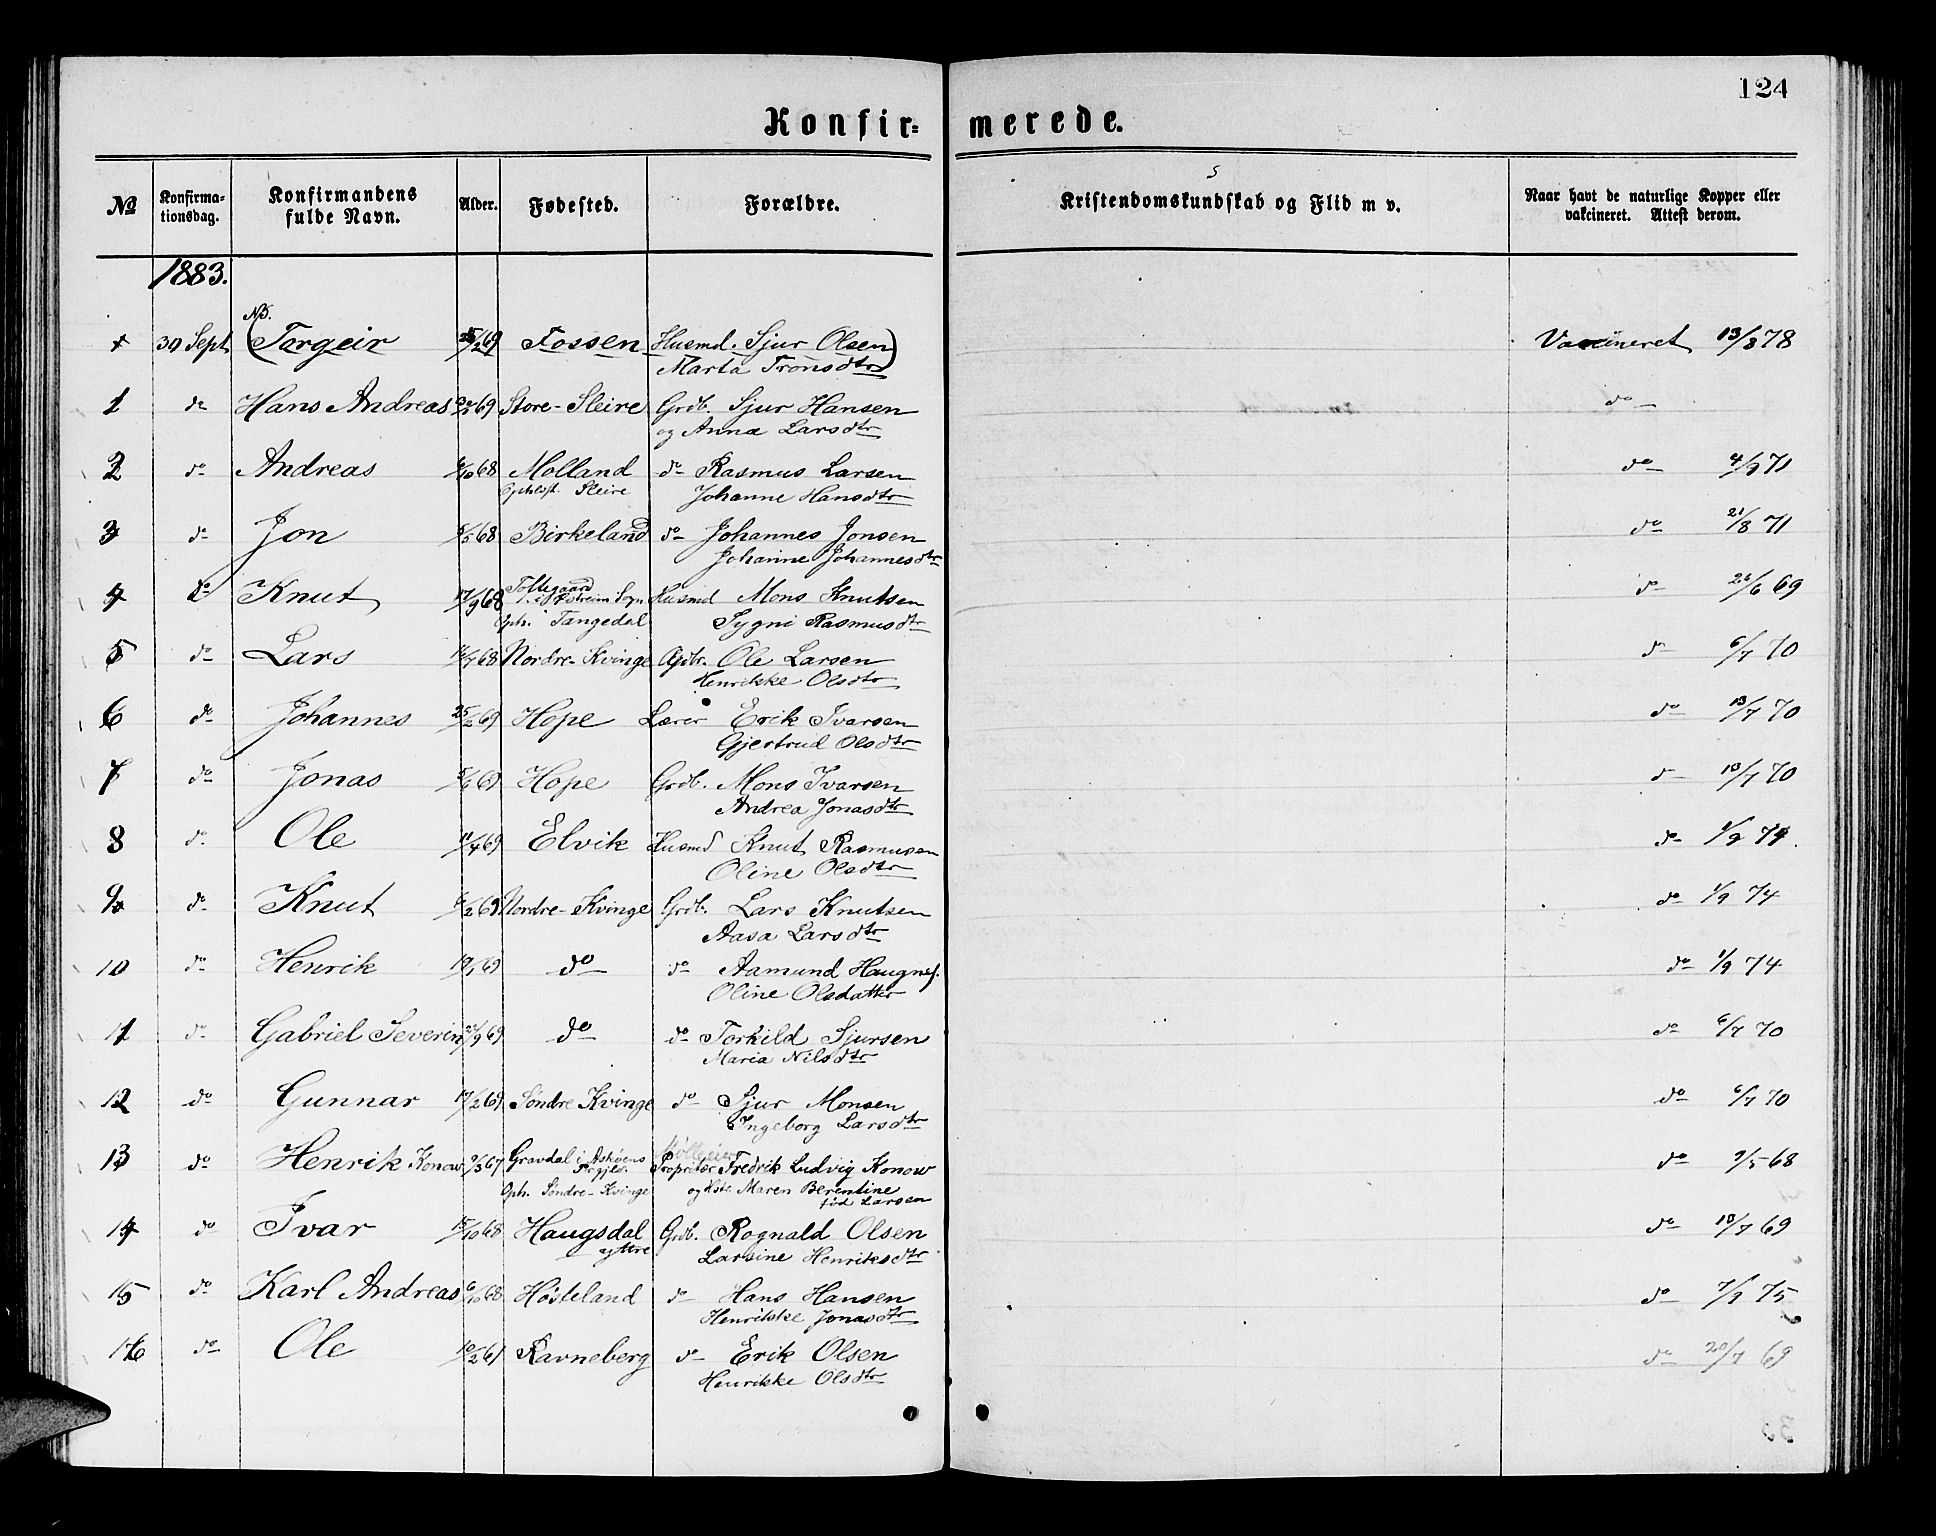 124
Konfir= merede.
№ Konfirma-tionsdag. Konfirmandens fulde Navn. Alder. Fødested. Forældre. Kristendomskundskab og Flid m v. Naar havt de naturlige Kopper eller vakcineret. Attest derom.
1883.
NB.
+ 30 Sept (Torgeir 2 69 Fossen Husmd. Sjur Olsen) Vaccineret 13/8 78
Marta Tronsdtr
1 do Hans Andreas 69 Store-Sleire Grdb. Sjur Hansen do
og Anna Larsdtr
2 do Andreas 10 68 Molland do Rasmus Larsen do 4/9 71
Ophldst. Sleire Johanne Hansdtr
3 do Jon 5 68 Birkeland do Johannes Jonsen do 21/8 71
Johanne Johannesdtr
4 do Knut 17/9 68 Toftegaard Husmd Mons Knutsen do 6 69
Oph. Tangedal Sygni Rasmusdtr
5 do Lars 7 68 Nordre-Kvinge Ole Larsen do 6/7 70
Henrikke Olsdtr
6 do Johannes 25/2 69 Hope Lærer Erik Ivarsen do 13/7 70
Gjertrud Olsdtr
7 do Jonas 69 Hope Grdb. Mons Ivarsen do 13/7 70
Andrea Jonasdtr
8 do Ole 11/4 69 Elvik Husmd Knut Rasmusen do 1/9 74.
Oline Olsdtr
9 do Knut 2 69 Nordre-Kvinge Grdb. Lars Knutsen do 1/9 74
Aasa Larsdtr
10 do Henrik 69 do do Aamund Haugnes. do 1/9 74
Oline Olsdatter
11 do Gabriel Severin 69 do do Torkild Sjursen do 6/7 70
Maria Nilsdtr
12 do Gunnar 17/2 69 Søndre Kvinge do Sjur Monsen do 6/7 70
Ingeborg Larsdtr
13 do Henrik Konow 3 67 Gravdal i Askøens Propritær Fredrik Ludvig Konow do 9/5 68
Prgjld.
Oph. Søndre-Kvinge og Hst. Maren Berentine
fød Larsen
14 do Ivar 15/10 68 Haugsdal Grdb. Rognald Olsen do 13/7 69
yttre Larsine Henriksdtr
15 do Karl Andreas 6/10 68 Høsteland do Hans Hansen do 7/9 75
Henrikke Jonasdtr
16 do Ole 10/2 61 Ravneberg do Erik Olsen do 20/7 69
Henrikke Olsdtr